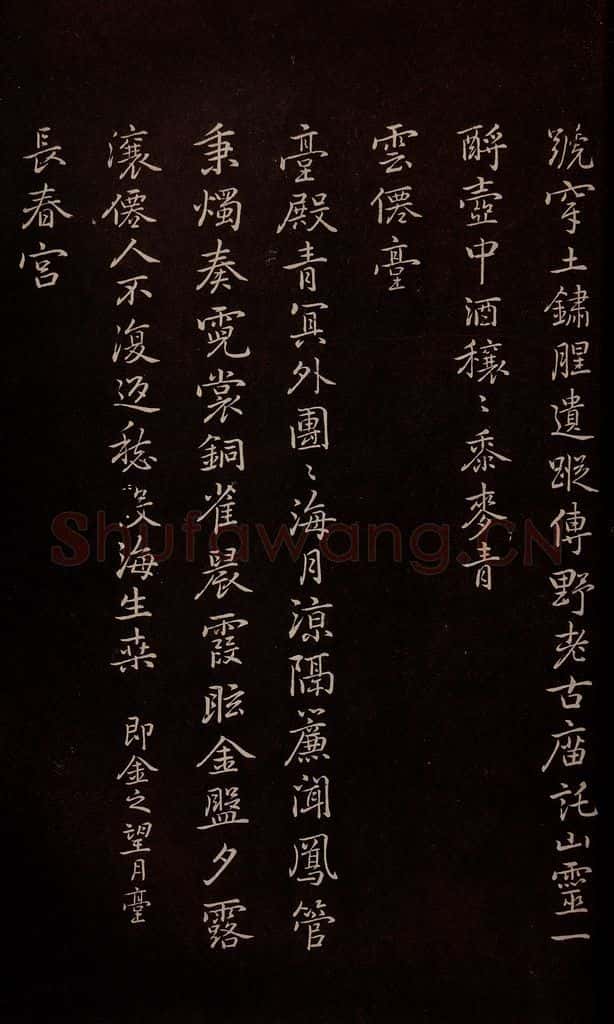 號穿土鏽腥遺蹤傳野老古廟託山靈一
酹壺中酒穰〻黍麥青
雲僊臺
臺殿青冥外團〻海月涼隔簾聞鳳管
秉燭奏霓裳銅雀晨霞眩金盤夕露
瀼僊人不復返愁沒海生桑 即金之望月臺
長春宮
Shufawang.CN